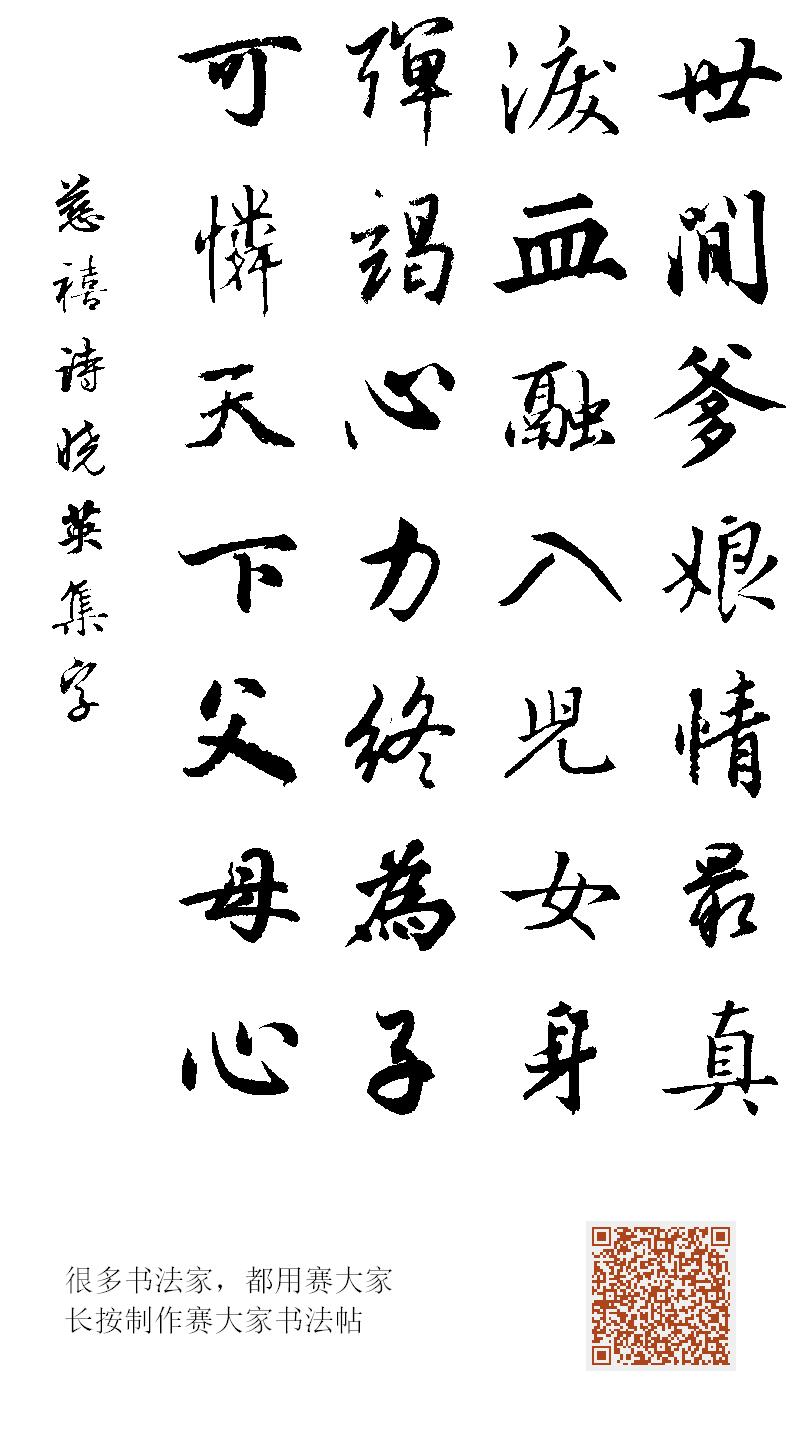 世間爹娘情最真
淚血融入兒女身
彈竭心力終為子
可憐天下父母心
慈禧诗晓英集字
很多书法家，都用赛大家
长按制作赛大家书法帖